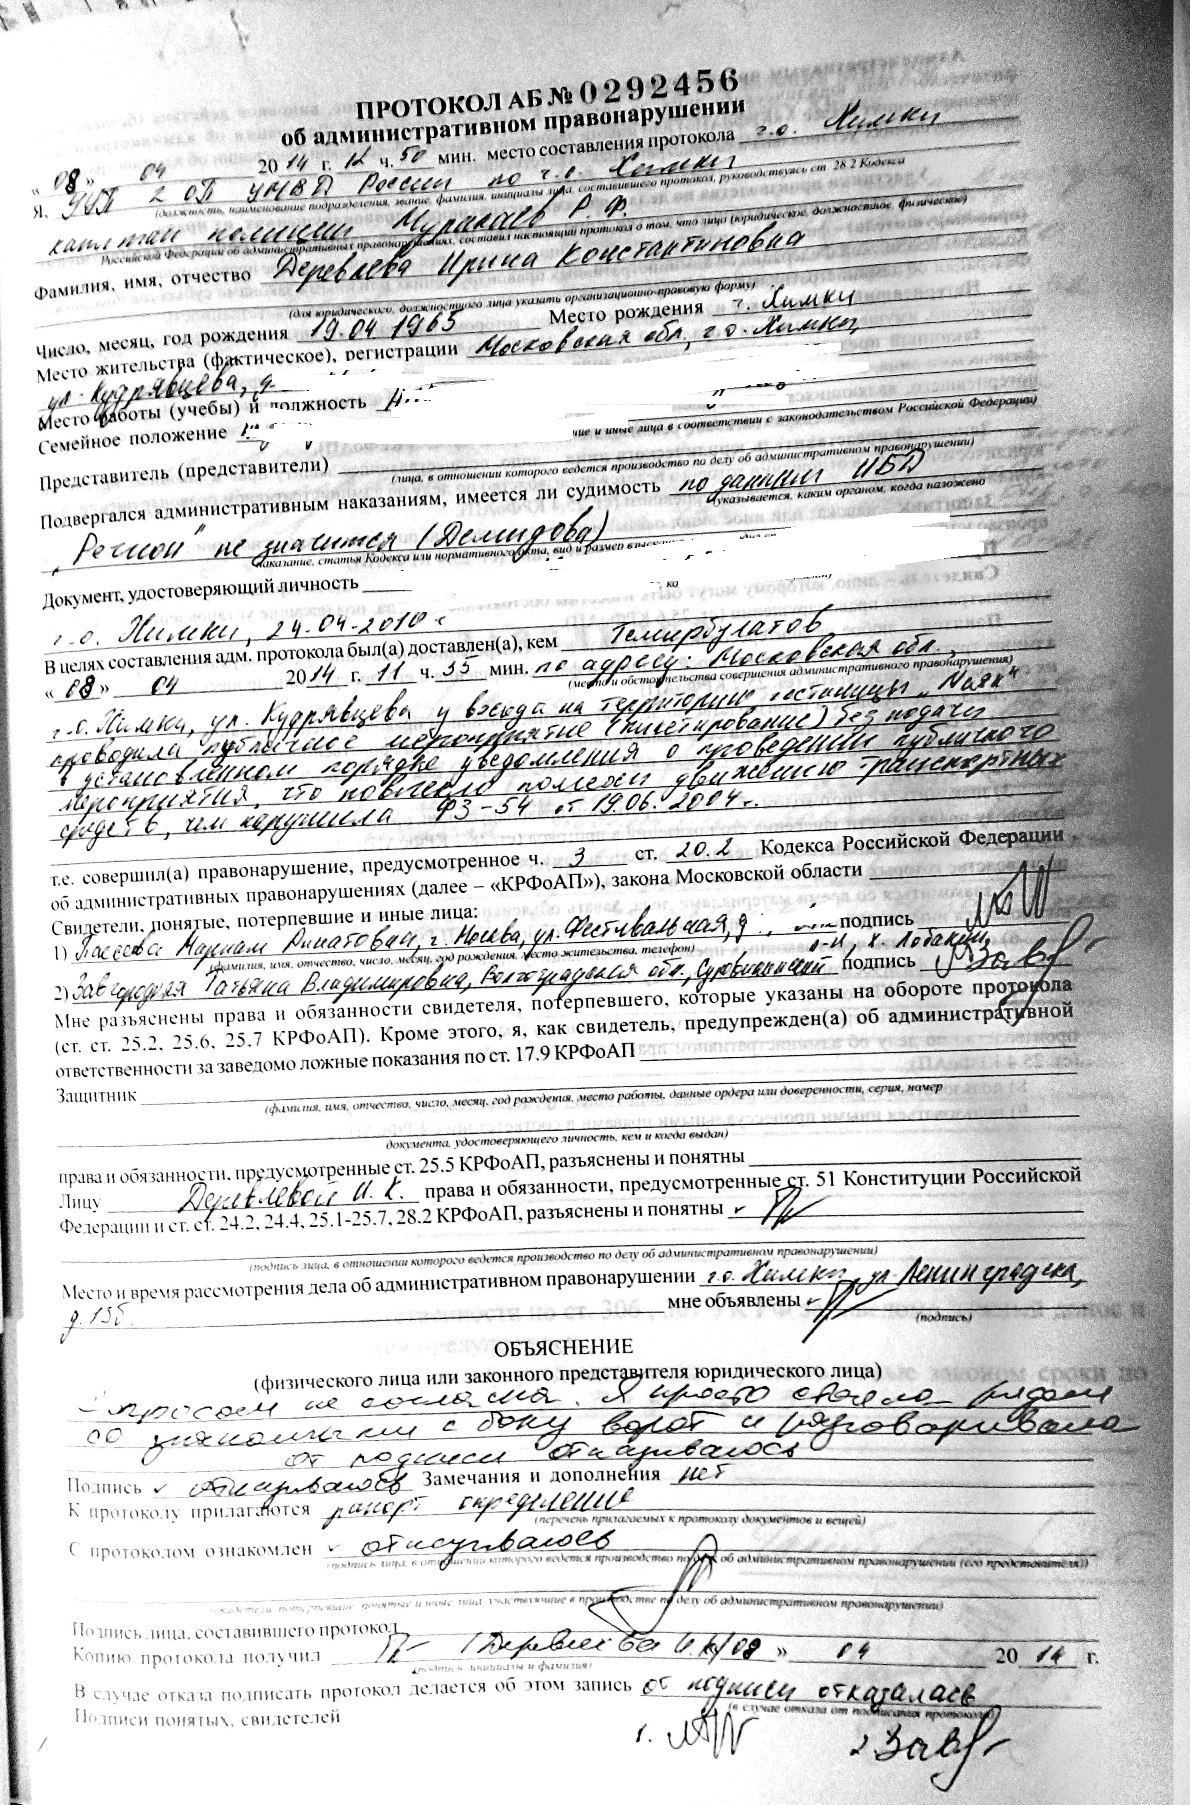 ПРОТОКОЛ АБ № 0292456
об административном правонарушении
« 08 » 04 2014 г. 12 ч. 50 мин. место составления протокола г.о. Химки
Я, УУП 2 ОП УМВД России по г.о. Химки
(должность, наименование подразделения, звание, фамилия, инициалы лица, составившего протокол, руководствуясь ст. 28.2 Кодекса
капитан полиции Муракаев Р.Ф.
Российской Федерации об административных правонарушениях, составил настоящий протокол о том, что лицо (юридическое, должностное, физическое)
Фамилия, имя, отчество Деревлева Ирина Константиновна
(для юридического, должностного лица указать организационно-правовую форму)
Число, месяц, год рождения 19.04 1965 Место рождения г. Химки
Место жительства (фактическое), регистрации Московская обл, г.о. Химки,
ул. Кудрявцева, д.
Место работы (учебы) и должность
Семейное положение
ние и иные лица в соответствии с законодательством Российской Федерации)
Представитель (представители)
(лица, в отношении которого ведется производство по делу об административном правонарушении)
Подвергался административным наказаниям, имеется ли судимость по данным ИБД
(указывается, каким органом, когда наложено
"Регион" не значится (Демидова)
наказание, статья Кодекса или нормативного акта, вид и размер
Документ, удостоверяющий личность
г.о. Химки, 24.04.2010г
В целях составления адм. протокола был(а) доставлен(а), кем Темирбулатов
« 08 » 04 2014 г. 11 ч. 35 мин. по адресу: Московская обл.,
(место и обстоятельства совершения административного правонарушения)
г.о. Химки, ул. Кудрявцева у въезда на территорию гостиницы „Маяк"
проводила публичное мероприятие (пикетирование) без подачи
в установленном порядке уведомления о проведении публичного
мероприятия, что повлекло помехи движению транспортных
средств, чем нарушила ФЗ-54 от 19.06.2004г.
т.е. совершил(а) правонарушение, предусмотренное ч. 3 ст. 20.2 Кодекса Российской Федерации
об административных правонарушениях (далее – «КРФоАП»), закона Московской области
Свидетели, понятые, потерпевшие и иные лица:
1) Мариам Ринатовна, г. Москва, ул. Фестивальная, д. подпись
(фамилия, имя, отчество, число, месяц, год рождения, место жительства, телефон)
р-н, х. Лобакин,
2) Завгородняя Татьяна Владимировна, Волгоградская обл., Суровикинский подпись Завг
Мне разъяснены права и обязанности свидетеля, потерпевшего, которые указаны на обороте протокола
(ст. ст. 25.2, 25.6, 25.7 КРФоАП). Кроме этого, я, как свидетель, предупрежден(а) об административной
ответственности за заведомо ложные показания по ст. 17.9 КРФоАП
Защитник
(фамилия, имя, отчество, число, месяц, год рождения, место работы, данные ордера или доверенности, серия, номер
документа, удостоверяющего личность, кем и когда выдан)
права и обязанности, предусмотренные ст. 25.5 КРФоАП, разъяснены и понятны
Лицу Деревлевой И. К. права и обязанности, предусмотренные ст. 51 Конституции Российской
Федерации и ст. ст. 24.2, 24.4, 25.1-25.7, 28.2 КРФоАП, разъяснены и понятны
(подпись лица, в отношении которого ведется производство по делу об административном правонарушении)
Место и время рассмотрения дела об административном правонарушении г.о. Химки, ул. Ленинградская,
д. 15б. мне объявлены
(подпись)
ОБЪЯСНЕНИЕ
(физического лица или законного представителя юридического лица)
не согласна. Я просто стояла рядом
со знакомыми с боку ворот и разговаривала
от подписи отказываюсь
Подпись отказываюсь Замечания и дополнения нет
К протоколу прилагаются рапорт определение
(перечень прилагаемых к протоколу документов и вещей)
С протоколом ознакомлен отказываюсь
(подпись лица, в отношении которого ведется производство по делу об административном правонарушении (его представителя))
(свидетели, потерпевшие, понятые и иные лица, участвующие в производстве по делу об административном правонарушении)
Подпись лица, составившего протокол
Копию протокола получил (Деревлева И.К.) 08 » 04 2014 г.
(подпись, инициалы и фамилия)
В случае отказа подписать протокол делается об этом запись от подписи отказалась
(в случае отказа от подписания протокола)
Подписи понятых, свидетелей
1. 2. Завг